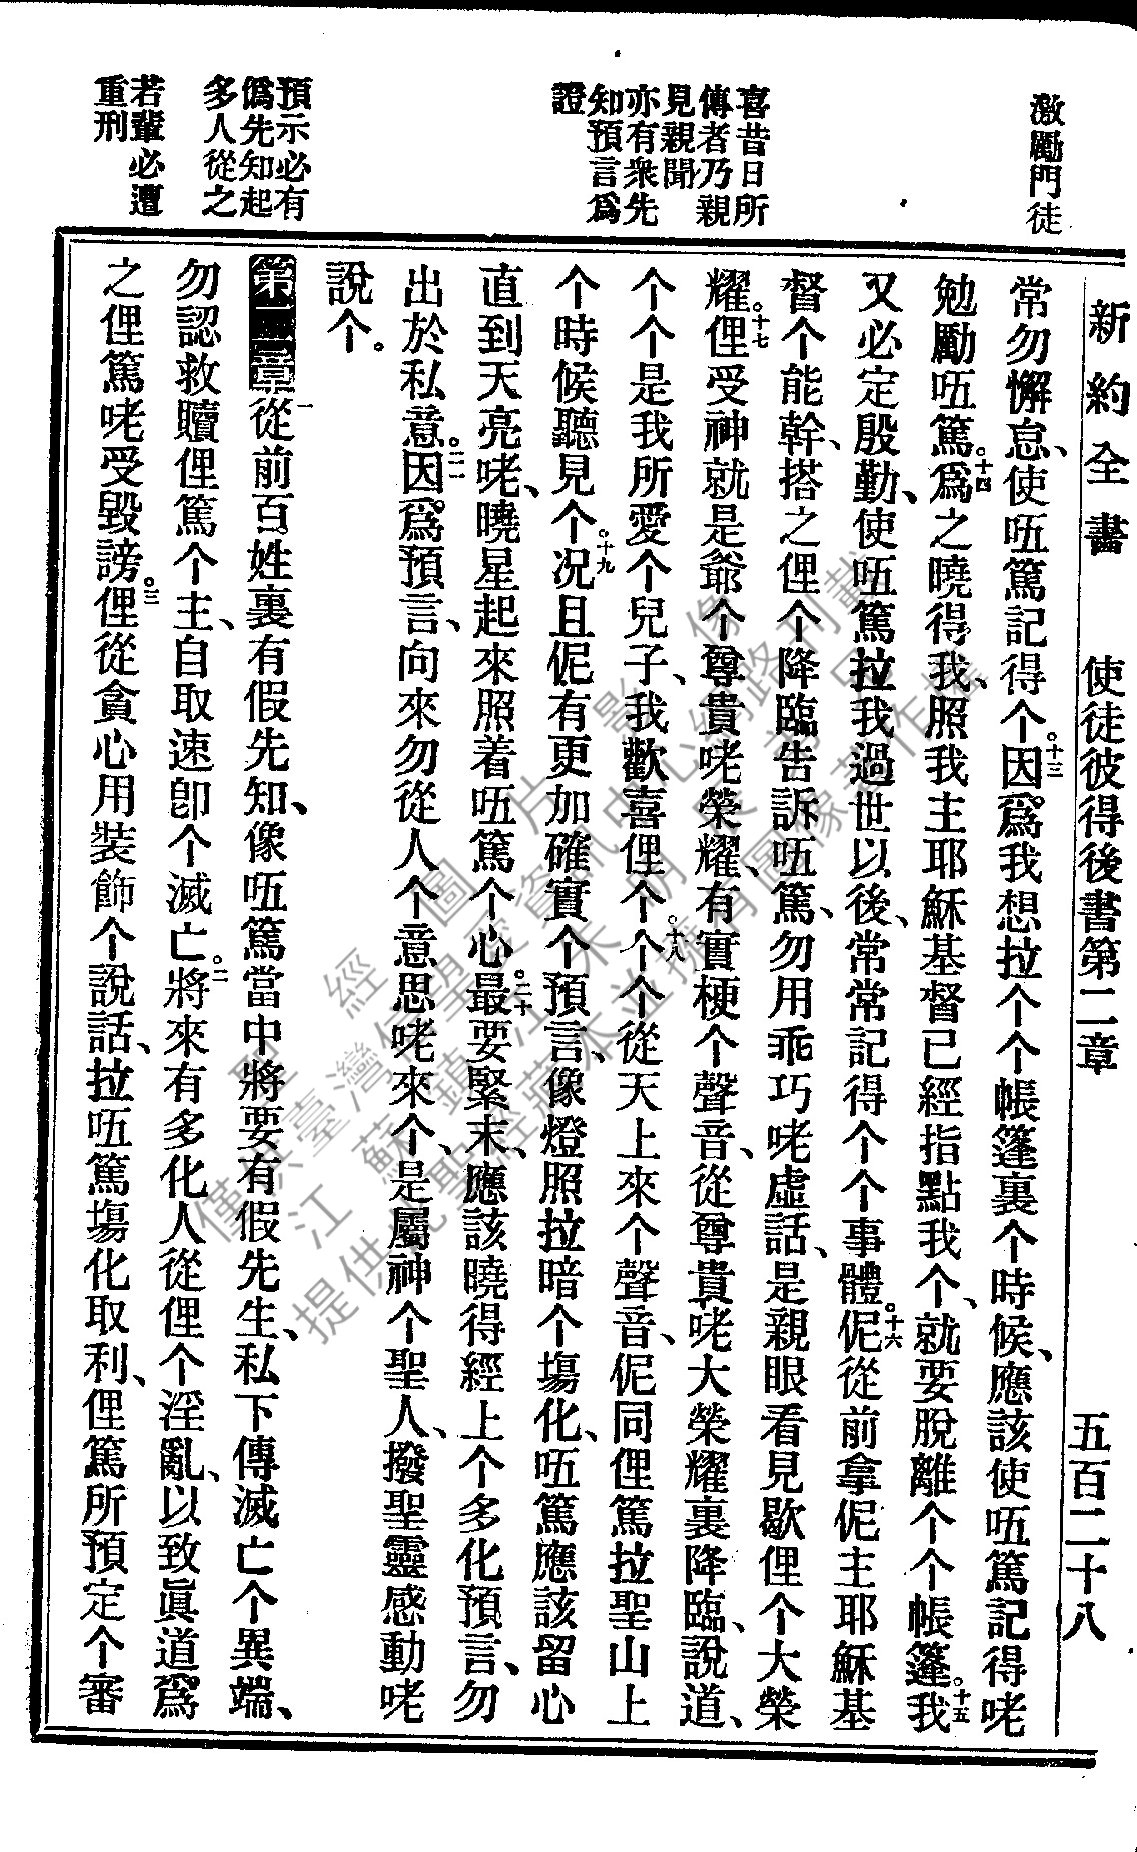 新約全書　使徒彼得後書第二章　五百二十八
激勵門徒
喜昔日所
傳者乃親
見親聞
亦有衆先
知預言爲
證
預示必有
僞先知起
多人從之
若輩必遭
重刑
常勿懈怠、使㕶篤記得个。十三因爲我想拉个个帳篷裏个時候、應該使㕶篤記得咾
勉勵㕶篤。十四爲之曉得我、照我主耶穌基督已經指點我个、就要脫離个个帳篷。十五我
又必定殷勤、使㕶篤拉我過世以後、常常記得个个事體。十六伲從前拿伲主耶穌基
督个能幹、搭之俚个降臨告訴㕶篤、勿用乖巧咾虛話、是親眼看見歇俚个大榮
耀。十七俚受神就是爺个尊貴咾榮耀、有實梗个聲音、從尊貴咾大榮耀裏降臨、說道、
个个是我所愛个兒子、我歡喜俚个。十八个个從天上來个聲音、伲同俚篤拉聖山上
个時候聽見个。十九况且伲有更加確實个預言、像燈照拉暗个塲化、㕶篤應該留心
直到天亮咾、曉星起來照着㕶篤个心。二十最要緊末、應該曉得經上个多化預言、勿
出於私意。二一因爲預言、向來勿從人个意思咾來个、是屬神个聖人、撥聖靈感動咾
說个。
第二章一從前百姓裏有假先知、像㕶篤當中將要有假先生、私下傳滅亡个異端、
勿認救贖俚篤个主、自取速卽个滅亡。二將來有多化人從俚个淫亂、以致眞道爲
之俚篤咾受毀謗。三俚從貪心用裝飾个說話、拉㕶篤塲化取利、俚篤所預定个審
聖經圖片影像
僅供臺灣信望愛資訊中心網路刊載
提供此聖經藏本並擁有圖像著作權